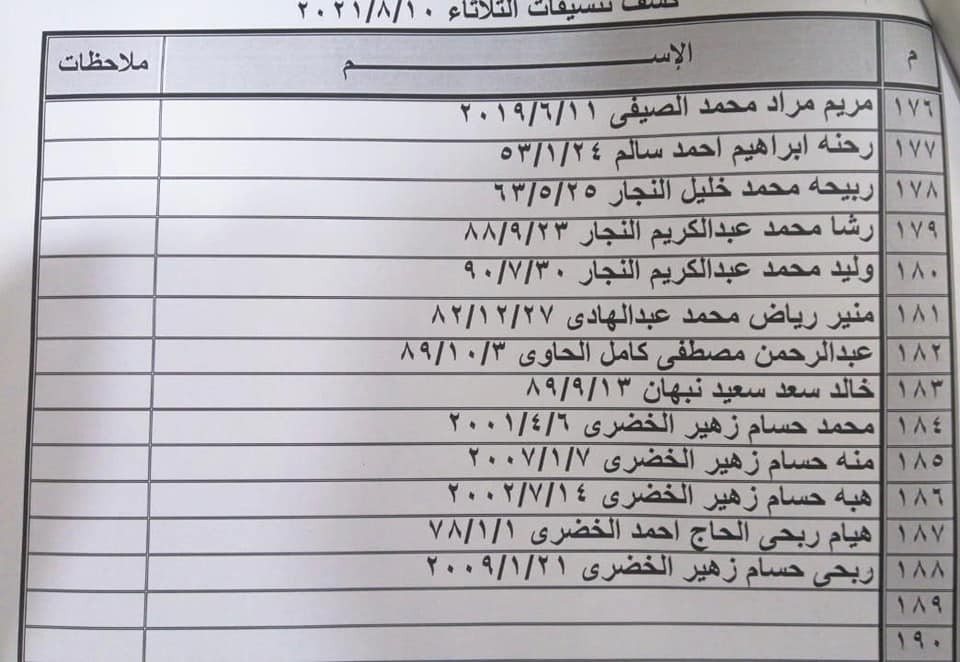 كشف تنسيقات الثلاثاء ٢٠٢١/٨/١٠
م الإســـم ملاحظات
١٧٦ مريم مراد محمد الصيفى ٢٠١٩/٦/١١
١٧٧ رحنه ابراهيم احمد سالم ٥٣/١/٢٤
١٧٨ ربيحه محمد خليل النجار ٦٣/٥/٢٥
١٧٩ رشا محمد عبدالكريم النجار ٨٨/٩/٢٣
١٨٠ وليد محمد عبدالكريم النجار ٩٠/٧/٣٠
١٨١ منير رياض محمد عبدالهادى ٨٢/١٢/٢٧
١٨٢ عبدالرحمن مصطفى كامل الحاوى ٨٩/١٠/٣
١٨٣ خالد سعد سعيد نبهان ٨٩/٩/١٣
١٨٤ محمد حسام زهير الخضرى ٢٠٠١/٤/٦
١٨٥ منه حسام زهير الخضرى ٢٠٠٧/١/٧
١٨٦ هبه حسام زهير الخضرى ٢٠٠٢/٧/١٤
١٨٧ هيام ربحى الحاج احمد الخضرى ٧٨/١/١
١٨٨ ربحى حسام زهير الخضرى ٢٠٠٩/١/٢١
١٨٩
١٩٠